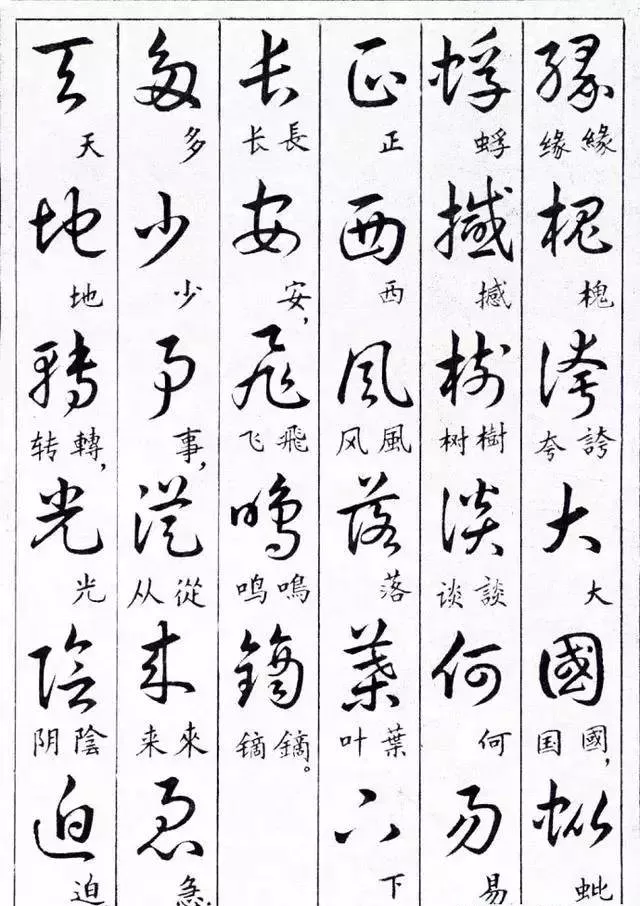 緣 缘緣 槐 槐 誇 夸誇 大 大 國 国國， 蚍 蚍
蜉 蜉 撼 撼 樹 树樹 談 谈談 何 何 易 易
正 正 西 西 風 风風 落 落 葉 叶葉 下 下
長 长長 安 安， 飛 飞飛 鳴 鸣鳴 鏑 镝鏑。
多 多 少 少 事 事， 從 从從 來 来來 急 急，
天 天 地 地 轉 转轉， 光 光 陰 阴陰 迫 迫